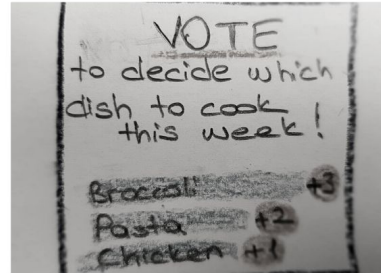 VOTE
to decide which
dish to cook
this week!
Broccoli +3
Pasta +2
Chicken +1